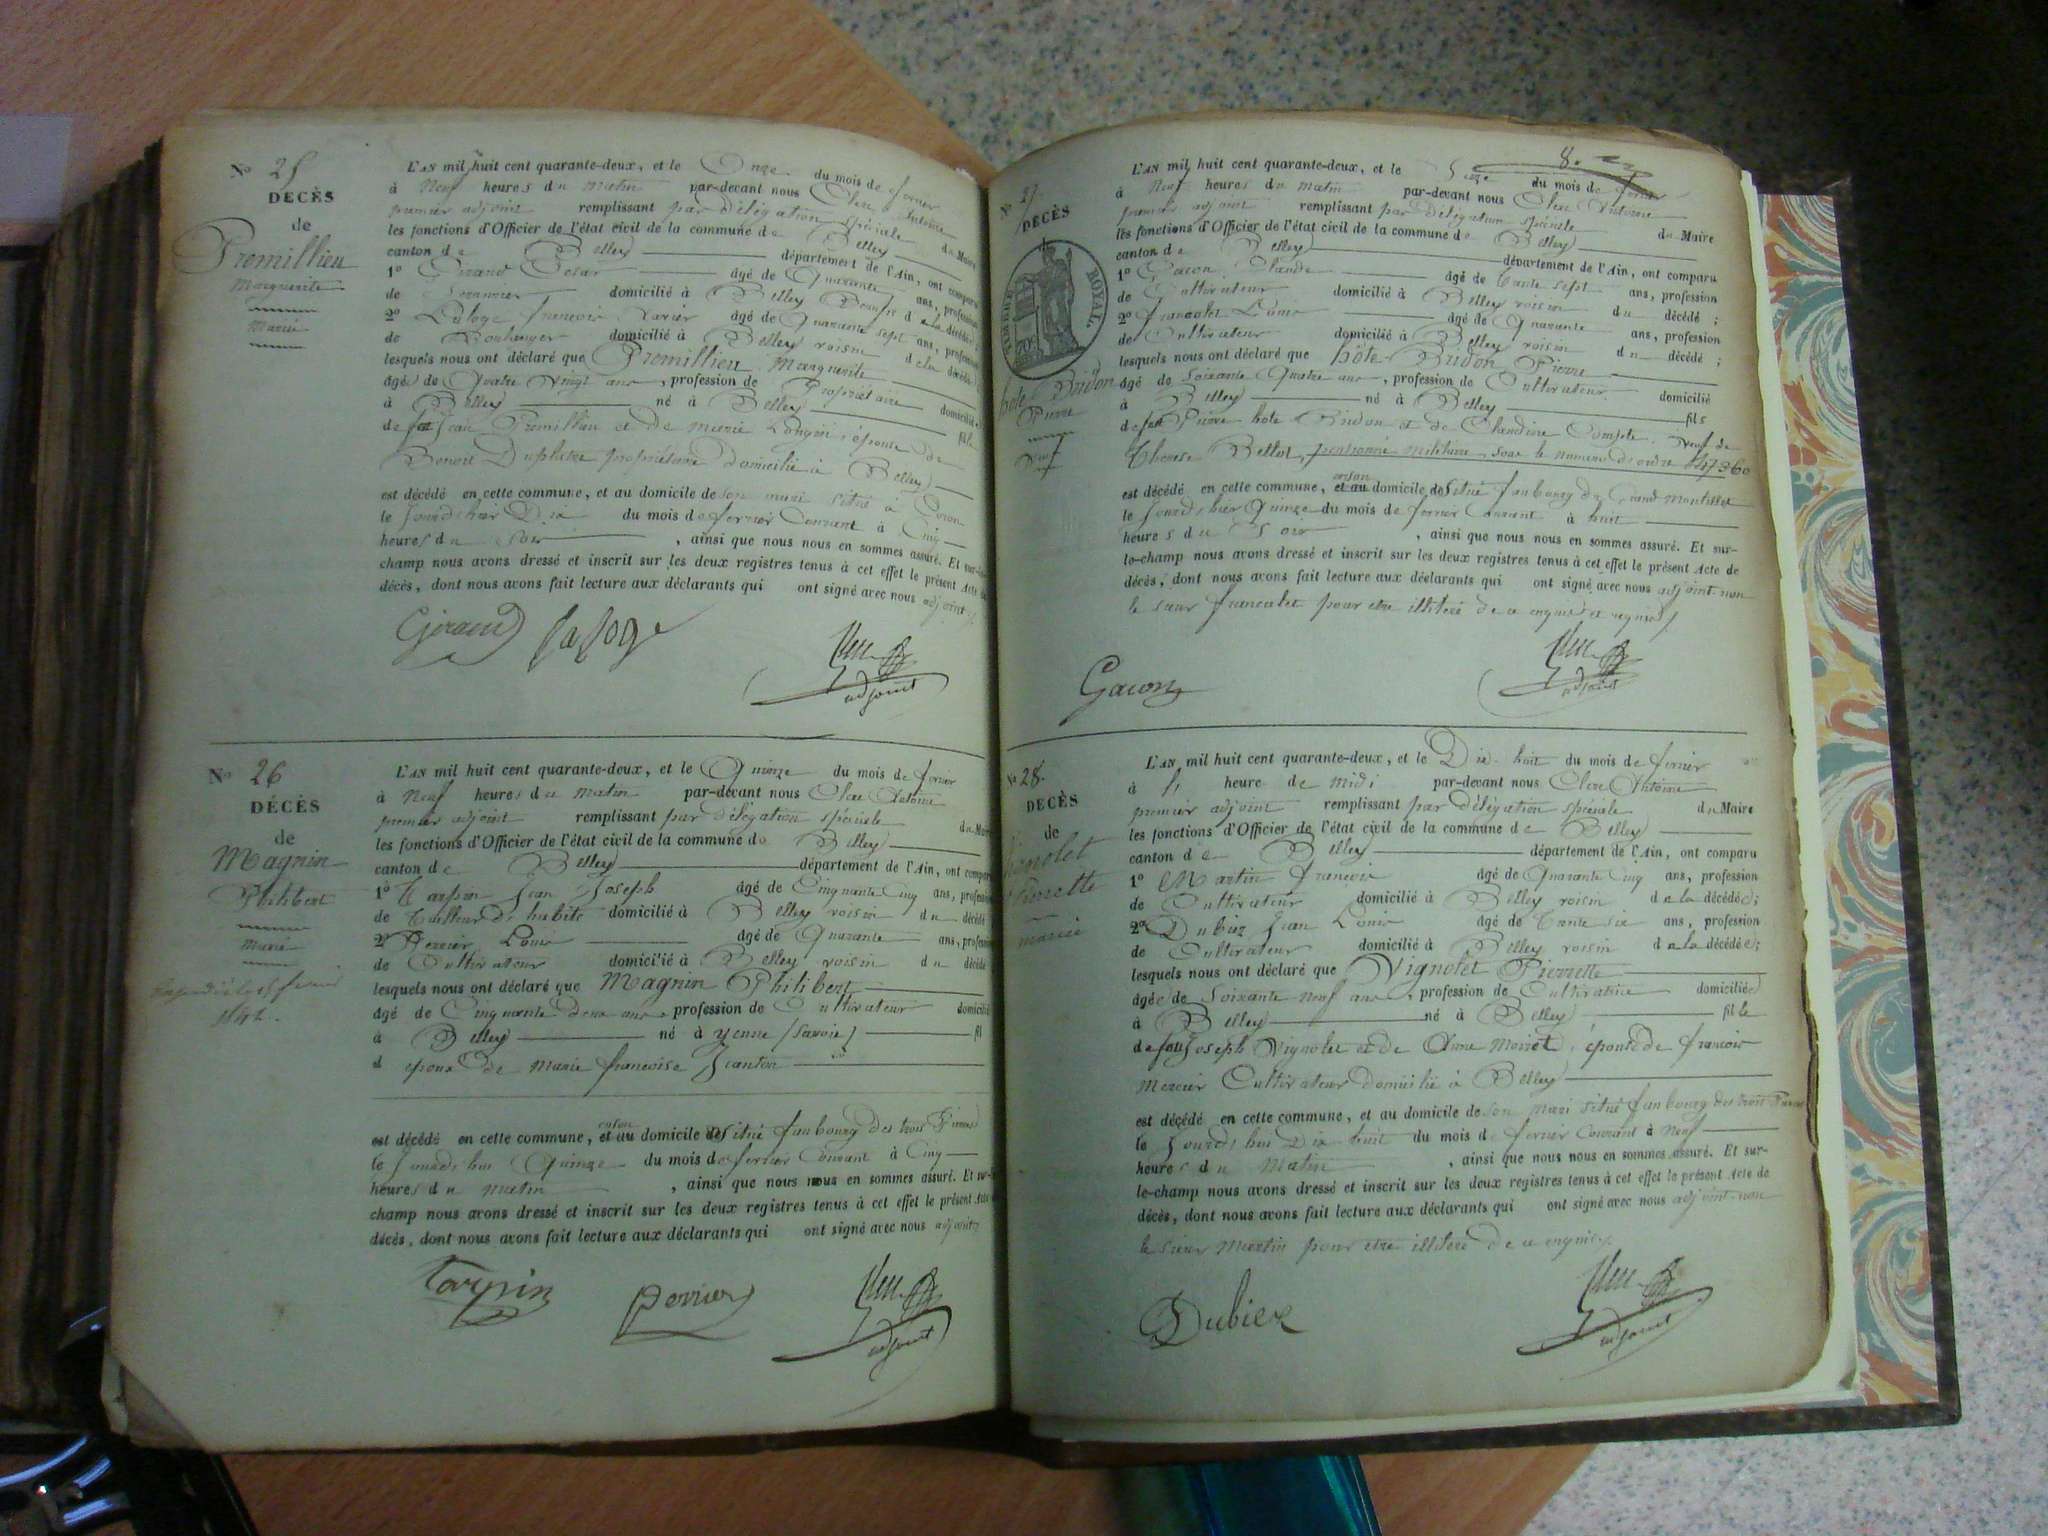 Nº 25
DÉCÈS
de
Premillieu
Marguerite
Mariée
L'AN mil huit cent quarante-deux, et le Onze du mois de fevrier
à Neuf heures du matin par-devant nous Clerc Antoine
premier adjoint remplissant par délégation spéciale du Maire
les fonctions d'Officier de l'état civil de la commune de Belley
canton de Belley département de l'Ain, ont comparu
1º Cesar âgé de Quarante ans, profession
de domicilié à Belley de la décédée
2º francois Xavier âgé de Quarante sept ans, profession
de Boulanger domicilié à Belley voisin de la décédée
lesquels nous ont déclaré que Premillieu Marguerite
âgé de Quatre Vingt ans, profession de Propriétaire domiciliée
à Belley né à Belley fille
de Jean Premillieu et de marie épouse de
Benoit Duplatre propriétaire domicilié à Belley
est décédé en cette commune, et au domicile de son mari situé à
le jourd'hier Dix du mois de fevrier Courant à Cinq
heures du soir, ainsi que nous nous en sommes assuré. Et sur-le-
champ nous avons dressé et inscrit sur les deux registres tenus à cet effet le présent Acte de
décès, dont nous avons fait lecture aux déclarants qui ont signé avec nous adjoint
adjoint
Nº 26
DÉCÈS
de
Magnin
Philibert
Marié
L'AN mil huit cent quarante-deux, et le Quinze du mois de fevrier
à Neuf heures du matin par-devant nous Clerc Antoine
premier adjoint remplissant par délégation spéciale du Maire
les fonctions d'Officier de l'état civil de la commune de Belley
canton de Belley département de l'Ain, ont comparu
1º Tarpin Jean Joseph âgé de Cinquante Cinq ans, profession
de Tailleur d'habits domicilié à Belley voisin du décédé
2º Perrier Louis âgé de Quarante ans, profession
de Cultivateur domicilié à Belley voisin du décédé
lesquels nous ont déclaré que Magnin Philibert
âgé de Cinquante deux ans, profession de Cultivateur domicilié
à Belley né à yenne (Savoie) fil
d époux de Marie françoise
est décédé en cette commune, et au domicile de situé faubourg des trois
le jourd'hui Quinze du mois de fevrier Courant à Cinq
heures du matin, ainsi que nous nous en sommes assuré. Et sur-
champ nous avons dressé et inscrit sur les deux registres tenus à cet effet le présent Acte
décès, dont nous avons fait lecture aux déclarants qui ont signé avec nous adjoint
Tarpin
Perrier
adjoint
8.
Nº 27
DÉCÈS
TIMBRE ROYAL
hôte Bridon
Pierre
Veuf
L'AN mil huit cent quarante-deux, et le Seize du mois de fevrier
à Neuf heures du matin par-devant nous Clerc Antoine
premier adjoint remplissant par délégation spéciale du Maire
les fonctions d'Officier de l'état civil de la commune de Belley
canton de Belley département de l'Ain, ont comparu
1º Gacon Claude âgé de trente sept ans, profession
de Cultivateur domicilié à Belley voisin du décédé;
2º francolet Louis âgé de Quarante ans, profession
de Cultivateur domicilié à Belley voisin du décédé;
lesquels nous ont déclaré que hôte Bridon Pierre
âgé de Soixante Quatre ans, profession de Cultivateur domicilié
à Belley né à Belley fils
de feu Pierre hote Bridon et de Claudine Veuf de
Therese Bellot, pensionné militaire, sous le numéro d'ordre
est décédé en cette commune, et au domicile de situé faubourg du Grand
le jourd'hier Quinze du mois de fevrier Courant à huit
heures du Soir, ainsi que nous nous en sommes assuré. Et sur-
le-champ nous avons dressé et inscrit sur les deux registres tenus à cet effet le présent Acte de
décès, dont nous avons fait lecture aux déclarants qui ont signé avec nous adjoint non
le sieur francolet pour etre illiteré de ce enquis et requis
Gacon
adjoint
Nº 28.
DÉCÈS
de
Vignolet
Pierrette
mariée
L'AN mil huit cent quarante-deux, et le Dix huit du mois de fevrier
à heure de midi par-devant nous Clerc Antoine
premier adjoint remplissant par délégation spéciale du Maire
les fonctions d'Officier de l'état civil de la commune de Belley
canton de Belley département de l'Ain, ont comparu
1º Martin francois âgé de Quarante Cinq ans, profession
de Cultivateur domicilié à Belley voisin de la décédée;
2º Dubiez Jean Louis âgé de trente six ans, profession
de Cultivateur domicilié à Belley voisin de la décédée;
lesquels nous ont déclaré que Vignolet Pierrette
âgée de Soixante neuf ans, profession de Cultivatrice domiciliée
à Belley né à Belley fille
de feu Joseph Vignolet et de Anne épouse de francois
Mercier Cultivateur domicilié à Belley
est décédé en cette commune, et au domicile de son mari situé faubourg des trois
le jourd'hui Dix huit du mois de fevrier Courant à Neuf
heures du Matin, ainsi que nous nous en sommes assuré. Et sur-
le-champ nous avons dressé et inscrit sur les deux registres tenus à cet effet le présent Acte de
décès, dont nous avons fait lecture aux déclarants qui ont signé avec nous adjoint non
le sieur Martin pour etre illiteré de ce enquis
Dubiez
adjoint